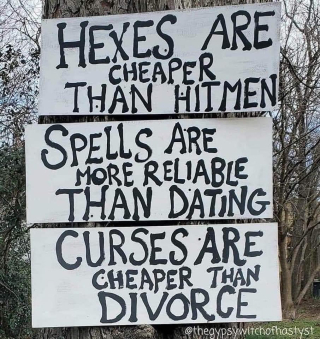 HEXES ARE
CHEAPER
THAN HITMEN
SPELLS ARE
MORE RELIABLE
THAN DATING
CURSES ARE
CHEAPER THAN
DIVORCE
@thegypsywitchofhastyst